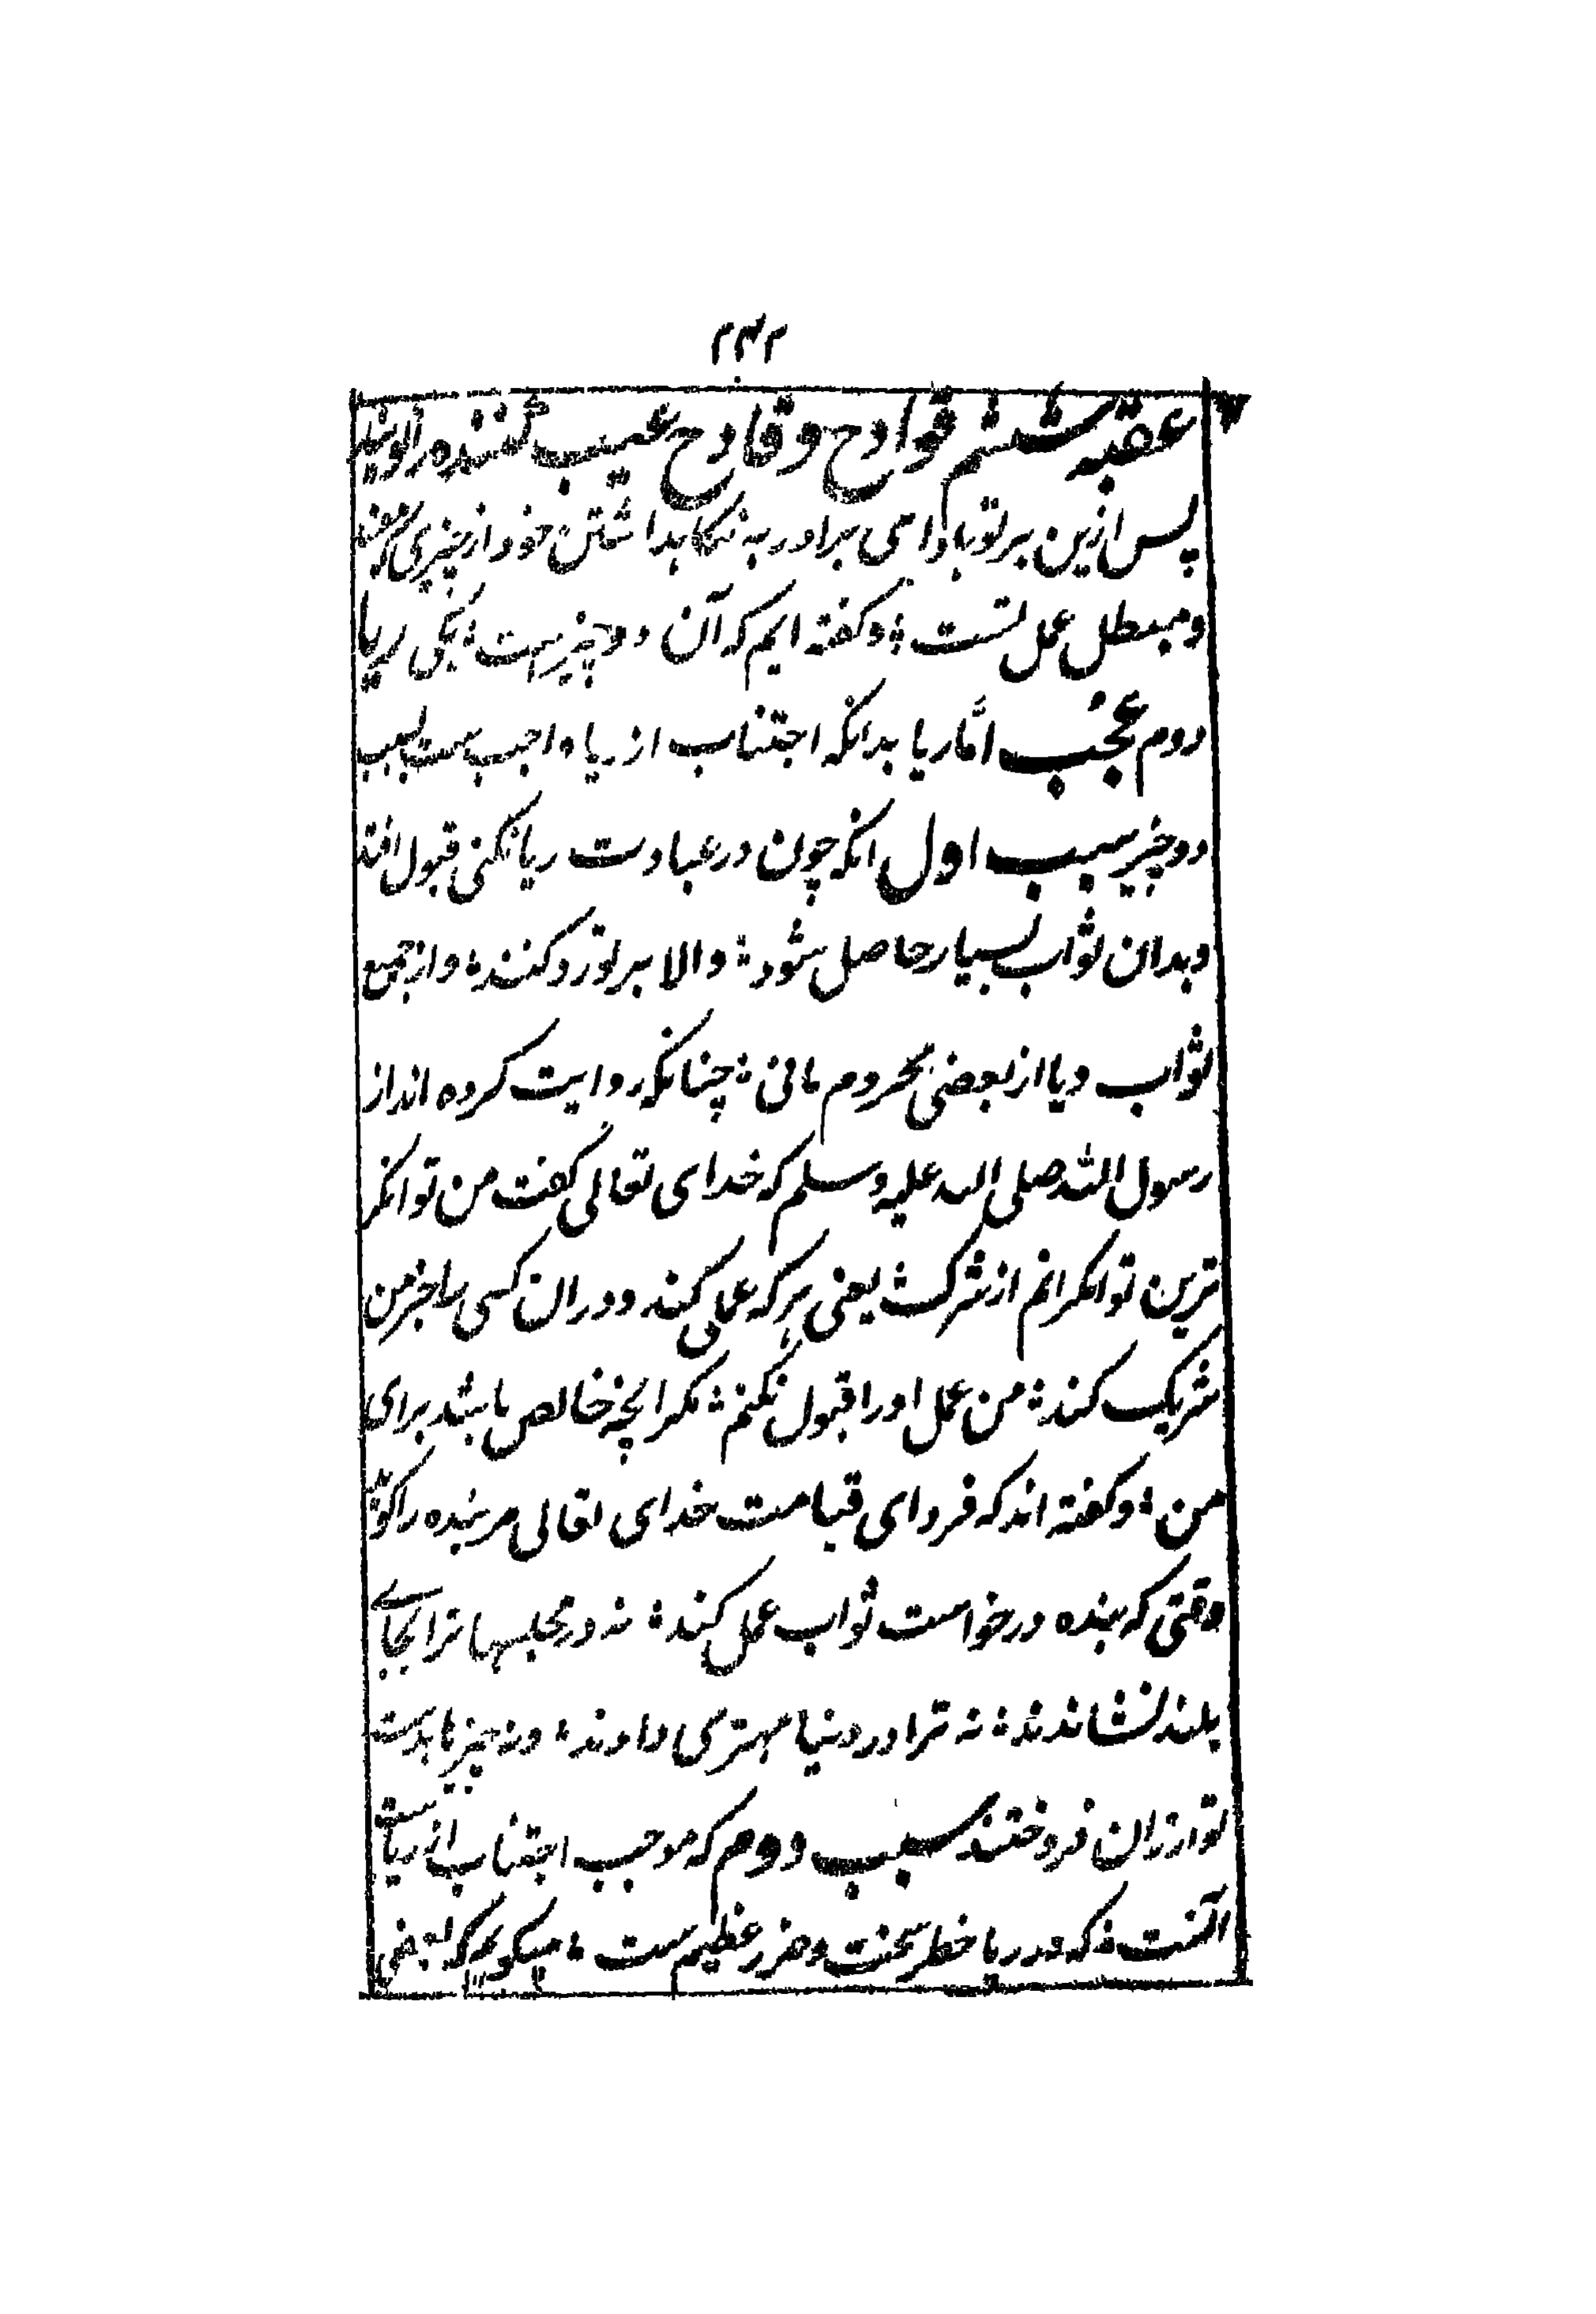 ۲۴۲
عقبه ششم قوادح و قادح عیب کننده را گویند
پس ازین بر تو باد ای برادر به نکاهداشتن خود از چیزی که مفسد
و مبطل عمل تست ؛ و کفته ایم که آن دو چیز است ؛ یکی ریا
دوم عُجُب امَّا ریا بدانکه اجتناب از ریا واجب ست بسبب
دو چیز سبب اول انکه چون در عبادت ریا نکنی قبول افتد
و بدان ثواب بسیار حاصل شود ؛ و الا بر تو رد کنند ؛ و از جمیع
ثواب و یا از بعضی محروم مانی ؛ چنانکه روایت کرده اند از
رسول الله صلی الله علیه وسلم که خدای تعالی کفت من توانکر
ترین توانکرانم از شرک ؛ یعنی هر که عملی کند و دران کسی را جز من
شریک کند ؛ من عمل او را قبول نکنم ؛ مکر انچه خالص باشد برای
من ؛ و کفته اند که فردای قیامت خدای تعالی مر بنده را کوید
وقتی که بنده درخواست ثواب عمل کند ؛ نه در مجلسها ترا بجاے
بلند نشاندند ؛ نه ترا در دنیا مهتری دادند ؛ و نه چیزها بدست
تو ارزان فروختند سبب دوم که موجب اجتناب از ریاست
آنست ؛ که در ریا خطر سخت و ضرر عظیم ست ؛ میکویم که بعضی